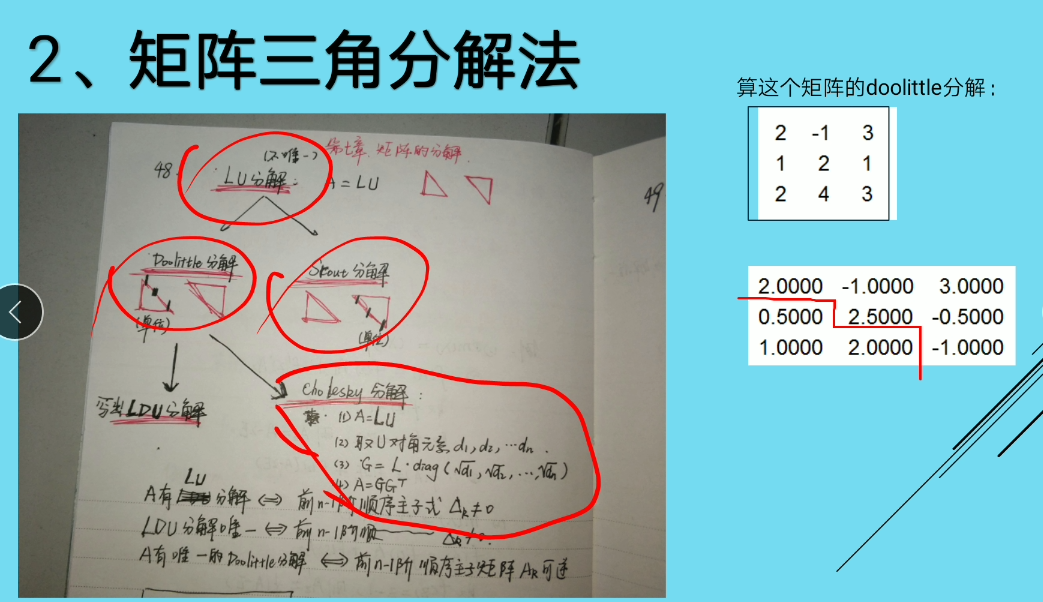 2、矩阵三角分解法
算这个矩阵的doolittle分解：
2 -1 3
1 2 1
2 4 3
2.0000 -1.0000 3.0000
0.5000 2.5000 -0.5000
1.0000 2.0000 -1.0000
48.
(不唯一)
第七章. 矩阵的分解.
LU分解: A=LU
49
Doolittle分解
Skout 分解
(单位)
(单位)
写出LDU分解
Cholesky 分解:
(1) A=LU
(2) 取U对角元素 d₁, d₂, …dn.
(3) G= L·diag(√d₁,√d₂,…,√dn)
(4) A=GGᵀ
LU
A有 分解 ⇔ 前n-1阶顺序主子式 Δk≠0
LDU分解唯一 ⇔ 前n-1阶顺 Δk≠0.
A有唯一的Doolittle分解 ⇔ 前n-1阶顺序主子矩阵 Ak可逆